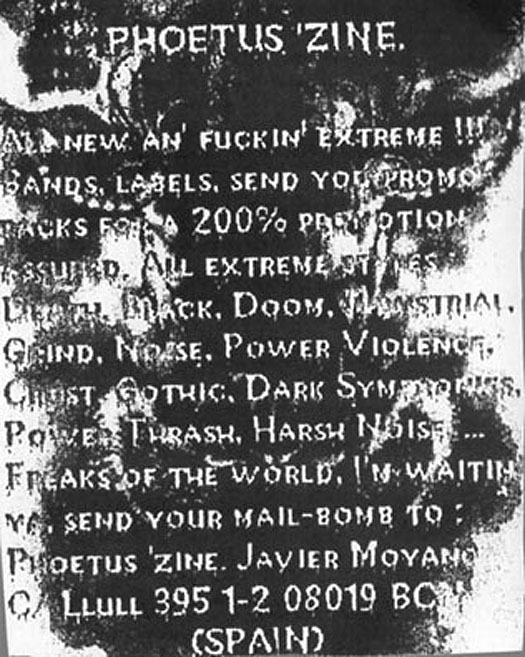 PHOETUS 'ZINE.
ALL NEW AN' FUCKIN' EXTREME !!!
BANDS, LABELS, SEND YOU PROMO
PACKS FOR A 200% PROMOTION
ASSURED. ALL EXTREME STYLES
DEATH, BLACK, DOOM, INDUSTRIAL,
GRIND, NOISE, POWER VIOLENCE,
CRUST, GOTHIC, DARK SYMPHONIES,
POWER THRASH, HARSH NOISE ...
FREAKS OF THE WORLD, I'M WAITIN
SEND YOUR MAIL-BOMB TO :
PHOETUS 'ZINE. JAVIER MOYANO
C/ LLULL 395 1-2 08019 BCN
(SPAIN)